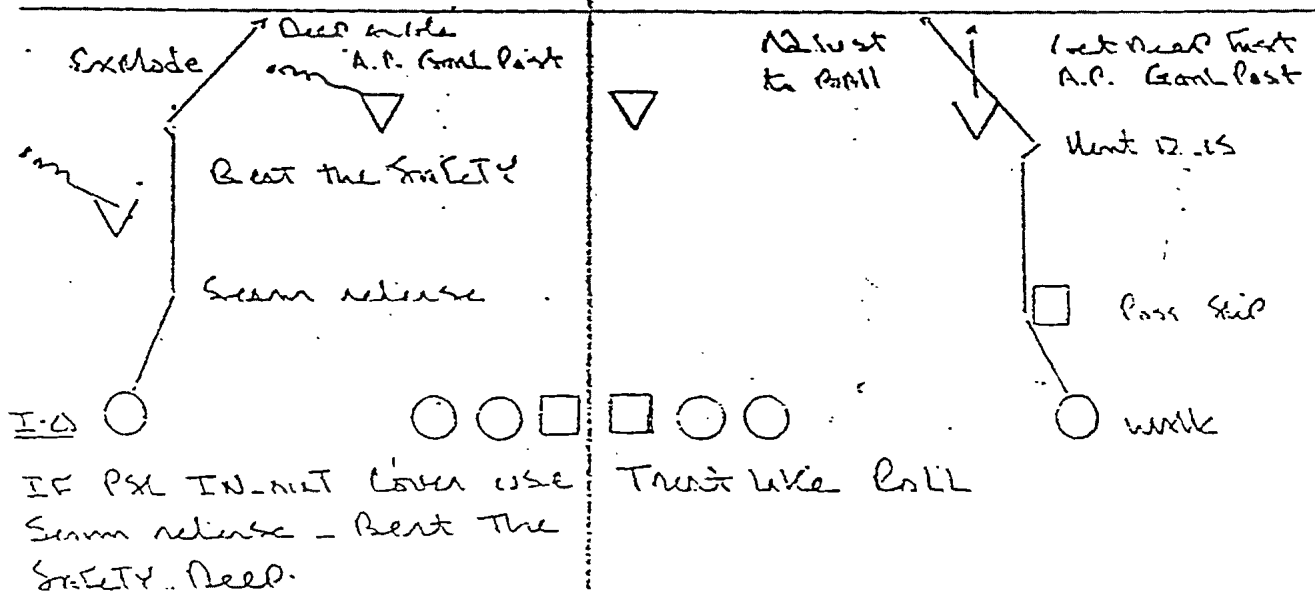 Explode
Deep
A.P. Goal Post
Beat the SAFETY
Seam release
I-O
IF PSL IN-OUT Cover use
Seam release - Beat The
SAFETY. Deep.
Adjust
to Roll
Get Deep First
A.P. Goal Post
Plant 12-15
Poss Skip
walk
Treat like Roll